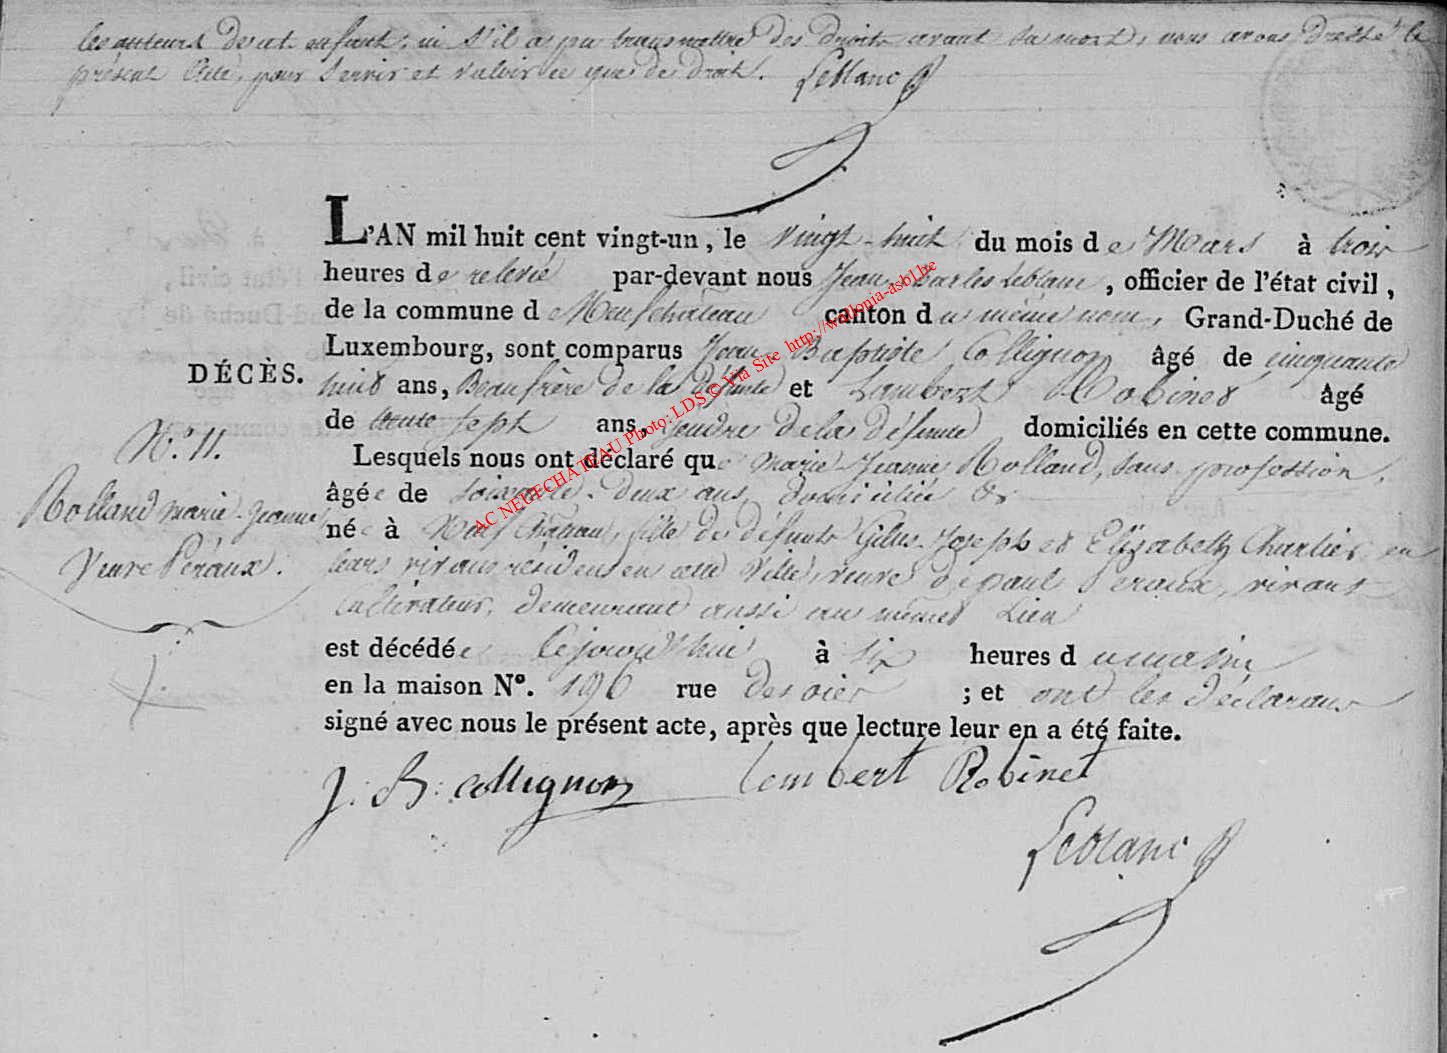 les auteurs de cet enfant, ni s'il a pu transmettre des droits avant sa mort, nous avons dressé le
présent acte, pour servir et valoir ce que de droit. Leblanc
L'AN mil huit cent vingt-un, le vingt-huit du mois de Mars à trois
heures de relevée par-devant nous Jean-Charles Leblanc, officier de l'état civil,
de la commune de Neufchateau canton du même nom, Grand-Duché de
Luxembourg, sont comparus Jean Baptiste Collignon âgé de cinquante
DÉCÈS.
huit ans, Beaufrère de la défunte et Lambert Robinet âgé
de trente sept ans, Gendre de la défunte domiciliés en cette commune.
N.º 11.
Rolland marie-Jeanne
Veuve Péraux.
Lesquels nous ont déclaré que marie-Jeanne Rolland, sans profession,
âgée de soixante-deux ans, domiciliée &
née à Neufchateau, fille de défunts Gilles-Joseph et Elisabeth Charlier, en
leurs vivans résidens en cette Ville, veuve de paul Peraux, vivant
cultivateur, demeurant aussi au même Lieu
est décédée Cejourd'hui à six heures du matin
en la maison Nº. 196 rue des oies ; et ont les déclarans
signé avec nous le présent acte, après que lecture leur en a été faite.
J. B: collignon lambert Robinet
Leblanc
AC NEUFCHATEAU Photo: LDS © Via Site http://wallonia-asbl.be